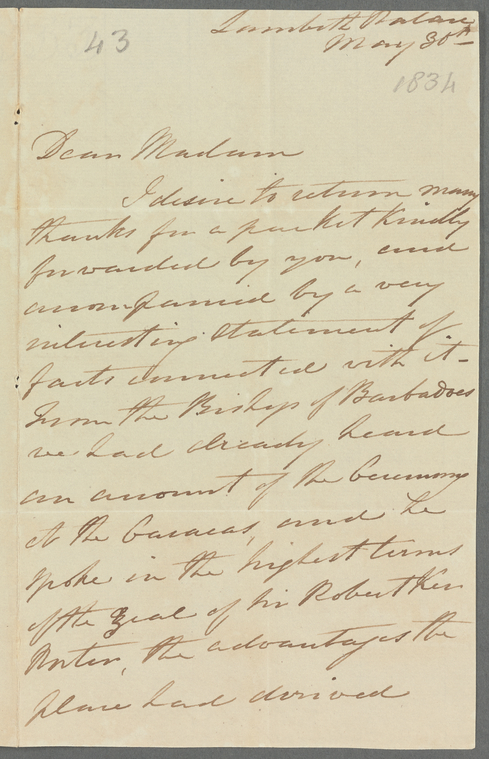 43
Lambeth Palace
May 30th
1834
Dear Madam
I desire to return many
thanks for a packet kindly
forwarded by you, and
accompanied by a very
interesting statement of
facts connected with it -
From the Bishop of Barbadoes
we had already heard
an account of the Ceremony
at the Caracas, and he
spoke in the highest terms
of the Zeal of Sir Robert Ker
Porter, the advantages the
place had derived